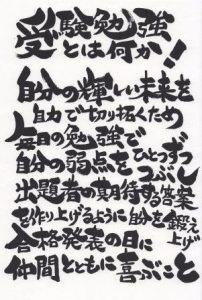 受験勉強
とは何か!
自分の輝しい未来を
自力で切り拓くため
毎日の勉強で
自分の弱点を
ひとつずつ
つぶし
出題者の期待する答案
を作り上げるように自分を鍛え
上げ
合格発表の日に
仲間とともに喜ぶこと